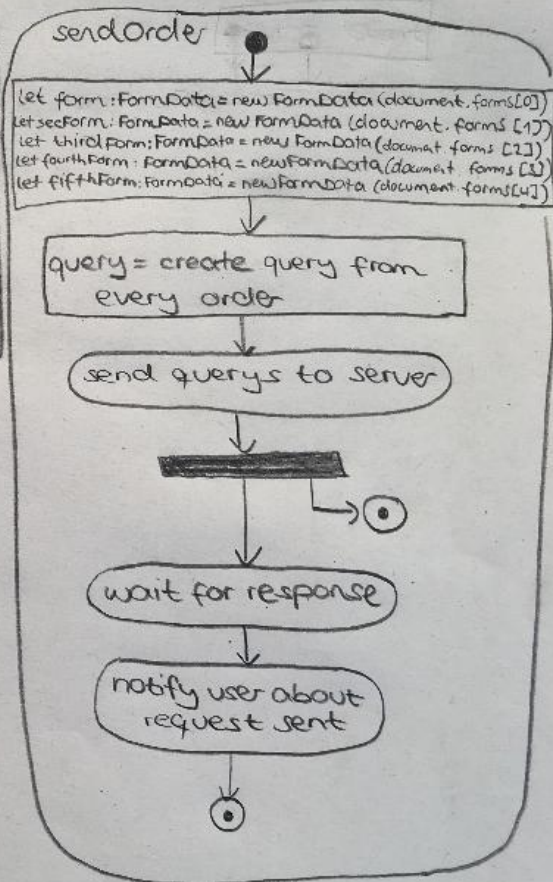 sendOrder
let form:FormData=new FormData(document.forms[0])
let secForm:FormData=new FormData(document.forms[1])
let thirdForm:FormData=new FormData(document.forms[2])
let fourthForm:FormData=newFormData(document.forms[3])
let fifthForm:FormData=newFormData(document.forms[4])
query = create query from
every order
send querys to server
wait for response
notify user about
request sent